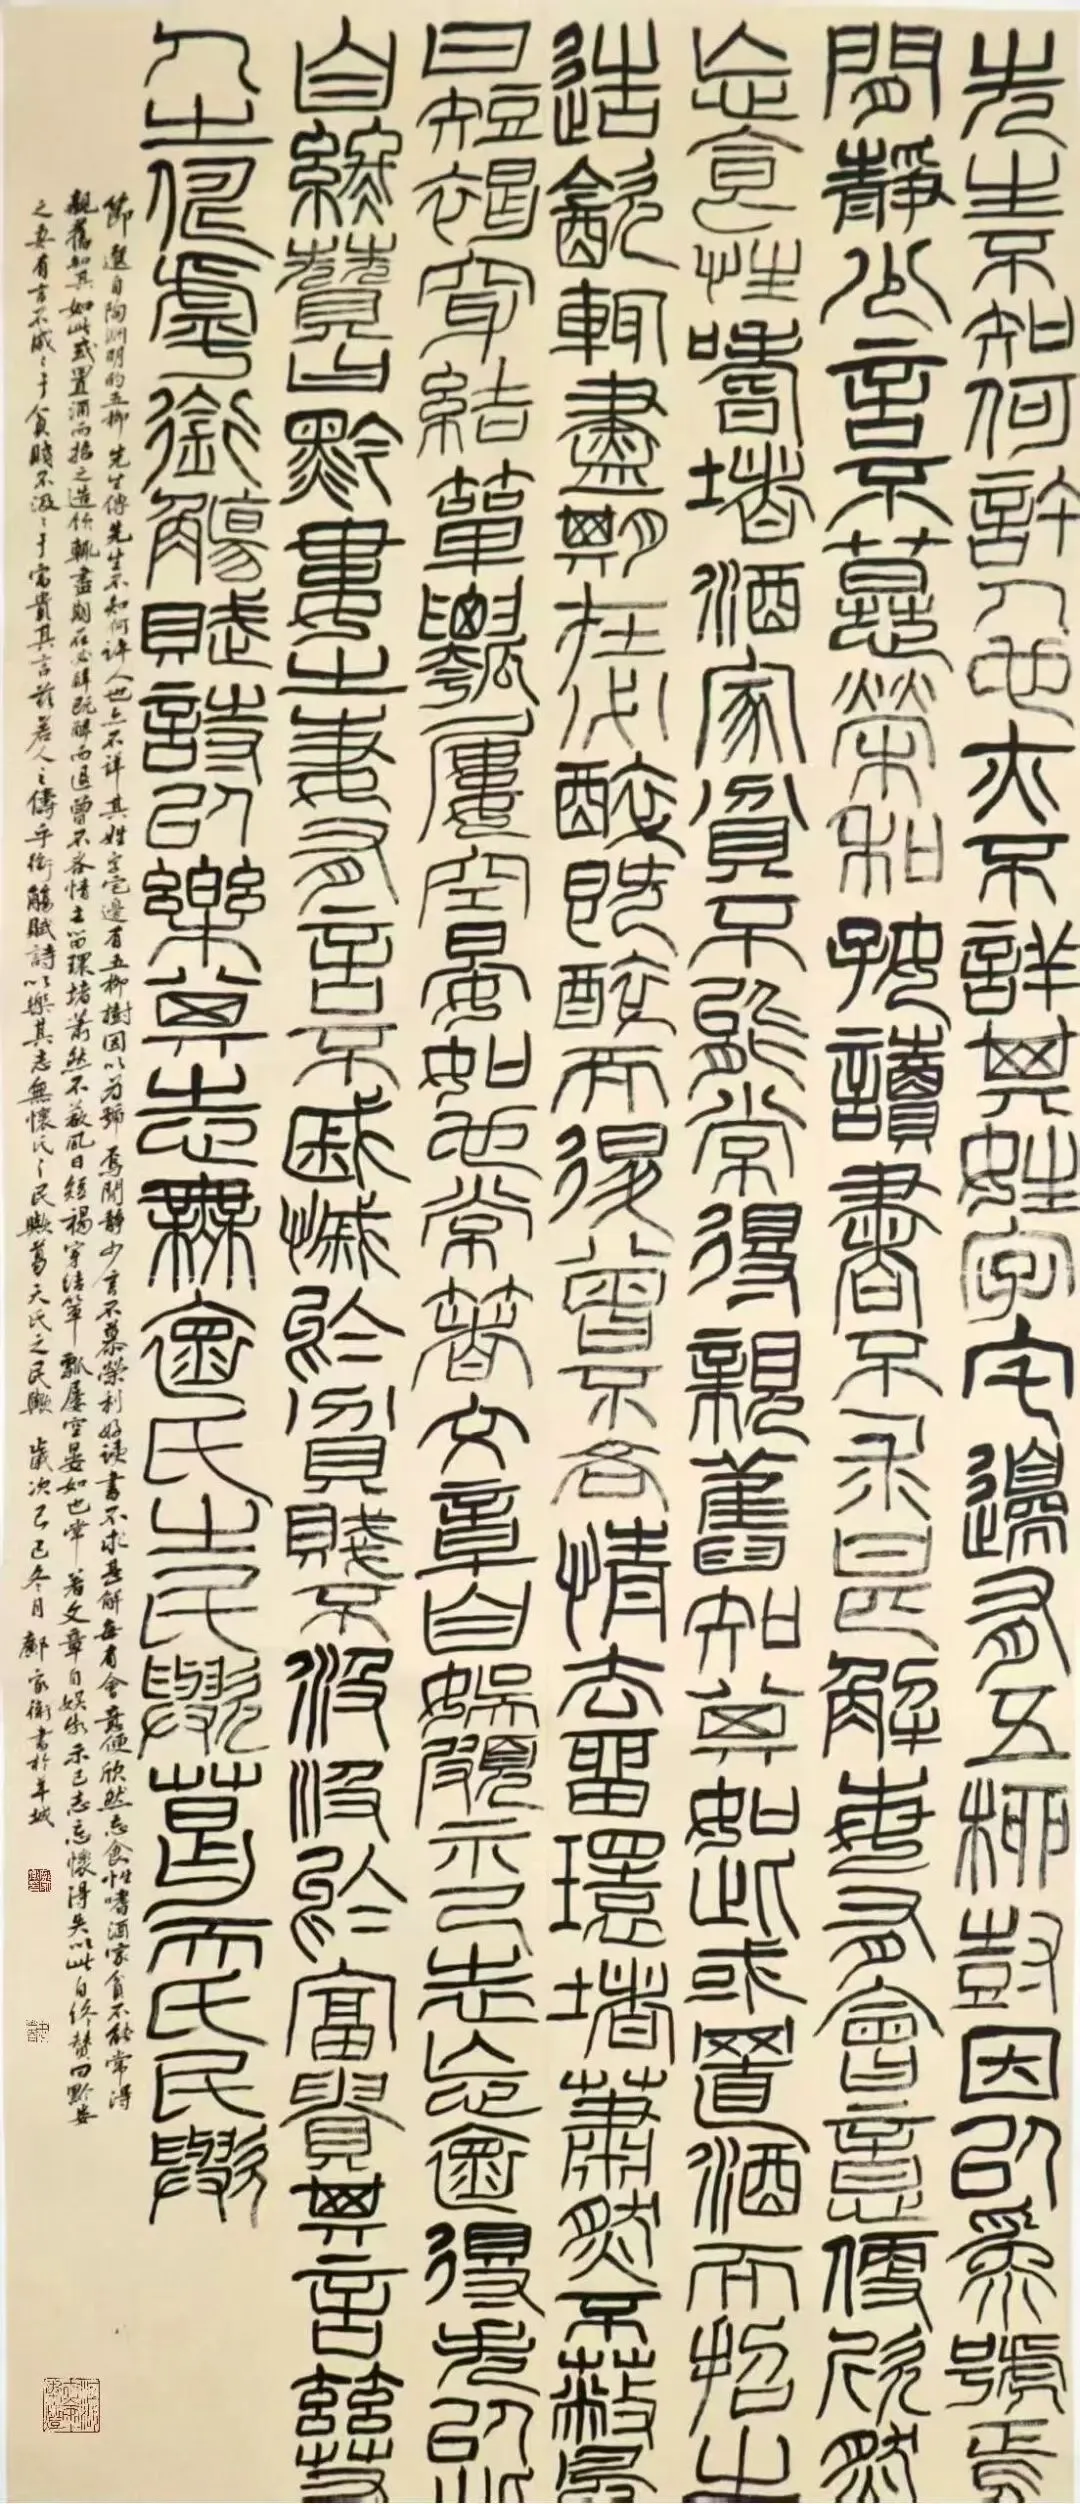 先生不知何許人也亦不詳其姓字宅邊有五柳樹因以為號焉
閒靜少言不慕榮利好讀書不求甚解每有會意便欣然
忘食性嗜酒家貧不能常得親舊知其如此或置酒而招之
造飲輒盡期在必醉既醉而退曾不吝情去留環堵蕭然不蔽風
日短褐穿結簞瓢屢空晏如也常著文章自娛頗示己志忘懷得失以此
自終贊曰黔婁之妻有言不戚戚於貧賤不汲汲於富貴其言茲若
人之儔乎銜觴賦詩以樂其志無懷氏之民歟葛天氏民歟
節選自陶淵明的五柳先生傳先生不知何許人也亦不詳其姓字宅邊有五柳樹因以為號焉閒靜少言不慕榮利好读書不求甚解每有會意便欣然忘食性嗜酒家貧不能常得
親舊知其如此或置酒而招之造飲輒盡期在必醉既醉而退曾不吝情去留環堵萧然不蔽風日短褐穿結簞瓢屢空晏如也常著文章自娛頗示己志忘懷得失以此自終贊曰黔婁
之妻有言不戚戚于貧賤不汲汲于富貴其言茲若人之儔乎銜觴賦詩以樂其志無懷氏之民歟葛天氏之民歟 歲次己巳冬月 鄺家衛書於羊城